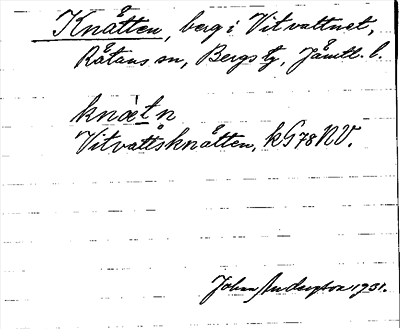 Knåtten, berg i Vitvattnet,
Råtans sn, Bergs tg, Jämtl. l.
knæ̀t n
Vitvattsknåtten, kG78NV.
Johan Anderzon 1931.